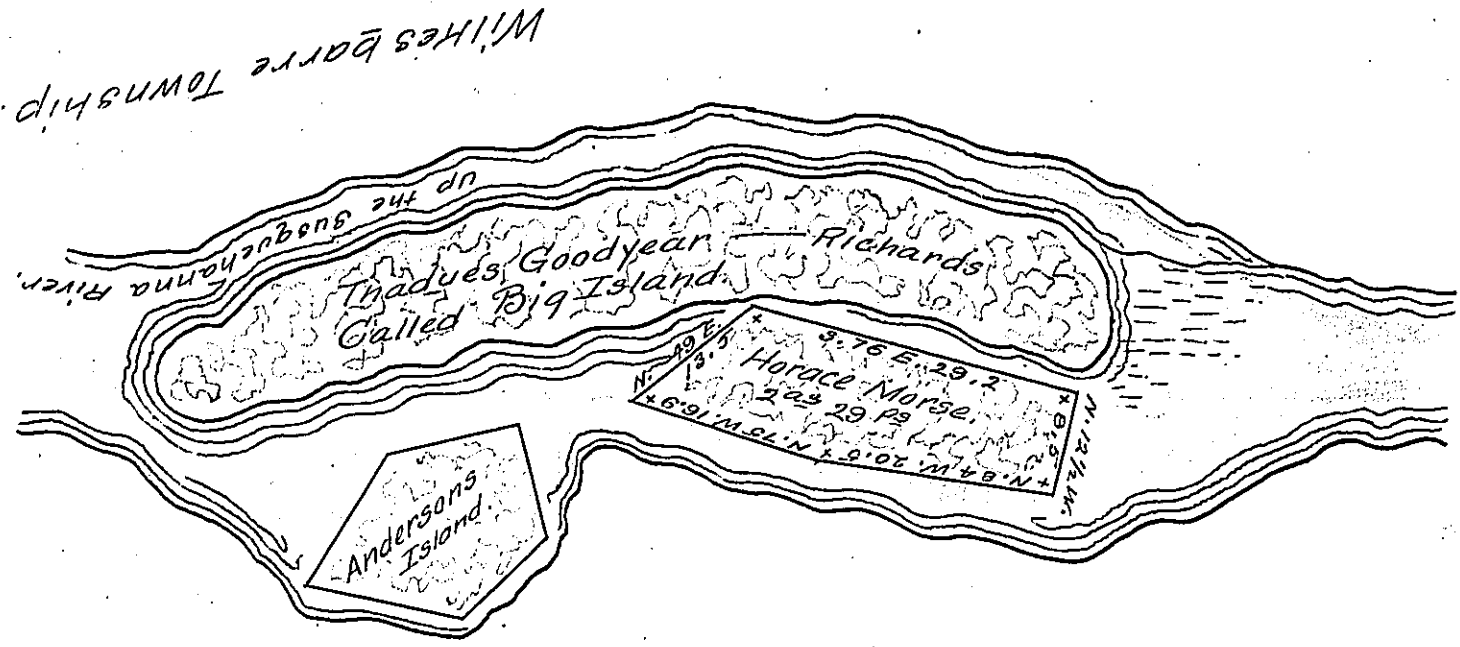 Wilkesbarre Township.
Up the Susquehanna River.
Thadues Goodyear — Richards
Called Big Island.
N. 49 E.
13.5
S. 76 E 29.2
Horace Morse.
2 as 29 ps
N. 75 W. 16.9
N. 84 W. 20.5
8.5
N. 12 1/2 W.
Andersons
Island.